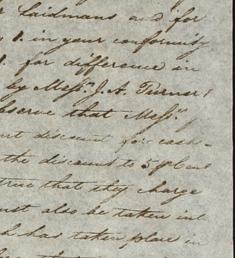 Laidmans and for
1. in your conformity
1. for difference in
by Messrs. J. A. Turner &
observe that Messrs.
discount for cash
the discount to 5 p Cent
true that they charge
also be taken int
has taken place in